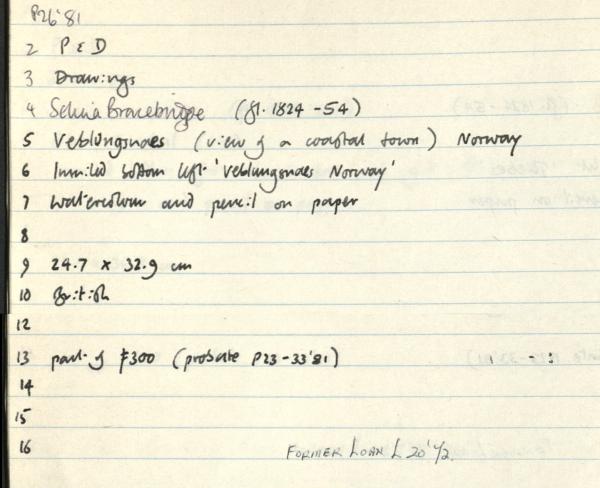 P26'81
2 P & D
3 Drawings
4 Selina Bracebridge (fl. 1824-54)
5 Veblungsnaes (view of a coastal town) Norway
6 Inscribed bottom left 'Veblungsnaes Norway'
7 Watercolour and pencil on paper
8
9 24.7 x 32.9 cm
10 British
12
13 part of £300 (probate P23-33'81)
14
15
16 FORMER LOAN L 20'